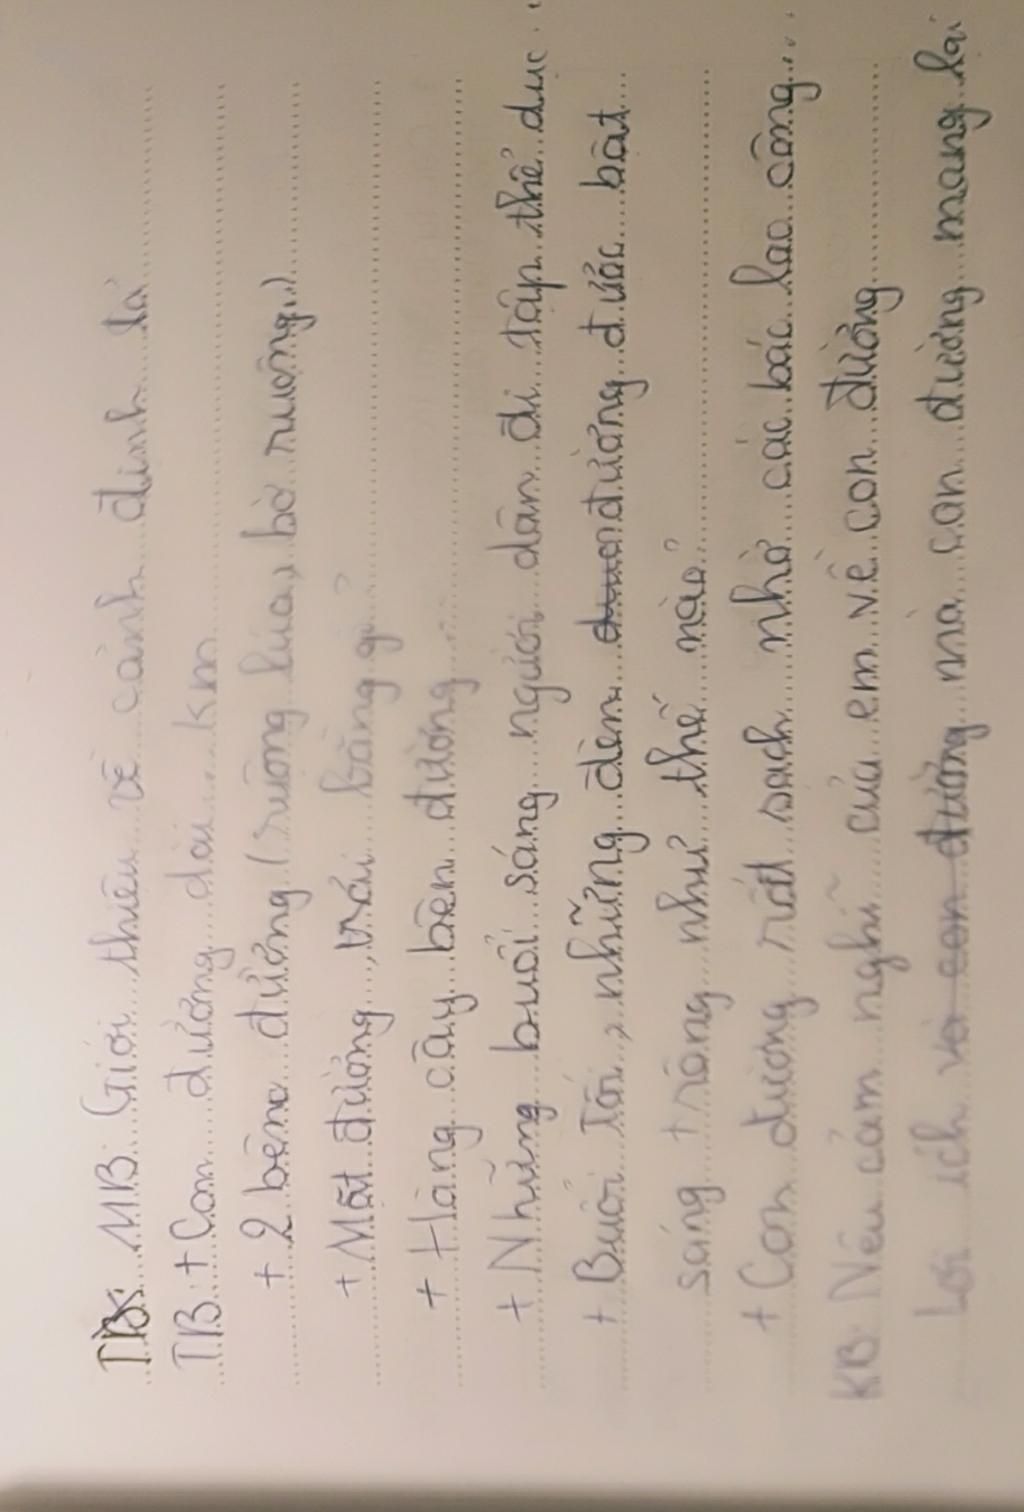 MB: Giới thiệu về cảnh định tả
TB: + Con đường dài... km
+ 2 bên đường (ruộng lúa, bờ ruộng..)
+ Mặt đường, trải bằng gì?
+ Hàng cây bên đường...
+ Những buổi sáng người dân đi tập thể dục...
+ Buổi tối, những đèn đường được bật
sáng trông như thế nào?
+ Con đường rất sạch nhờ các bác lao công...
KB: Nêu cảm nghĩ của em về con đường
Lợi ích mà con đường mang lại